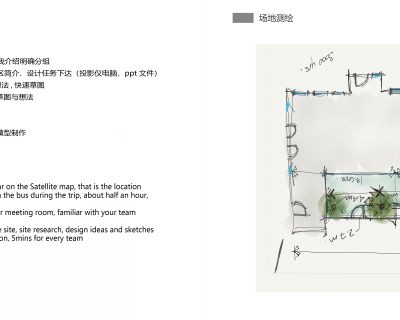 我介绍明确分组
区简介、设计任务下达（投影仪电脑，ppt 文件）
想法 , 快速草图
草图与想法
模型制作
ar on the Satellite map, that is the location
n the bus during the trip, about half an hour,
r meeting room, familiar with your team
e site, site research, design ideas and sketches
on, 5mins for every team
场地测绘
2.7 m